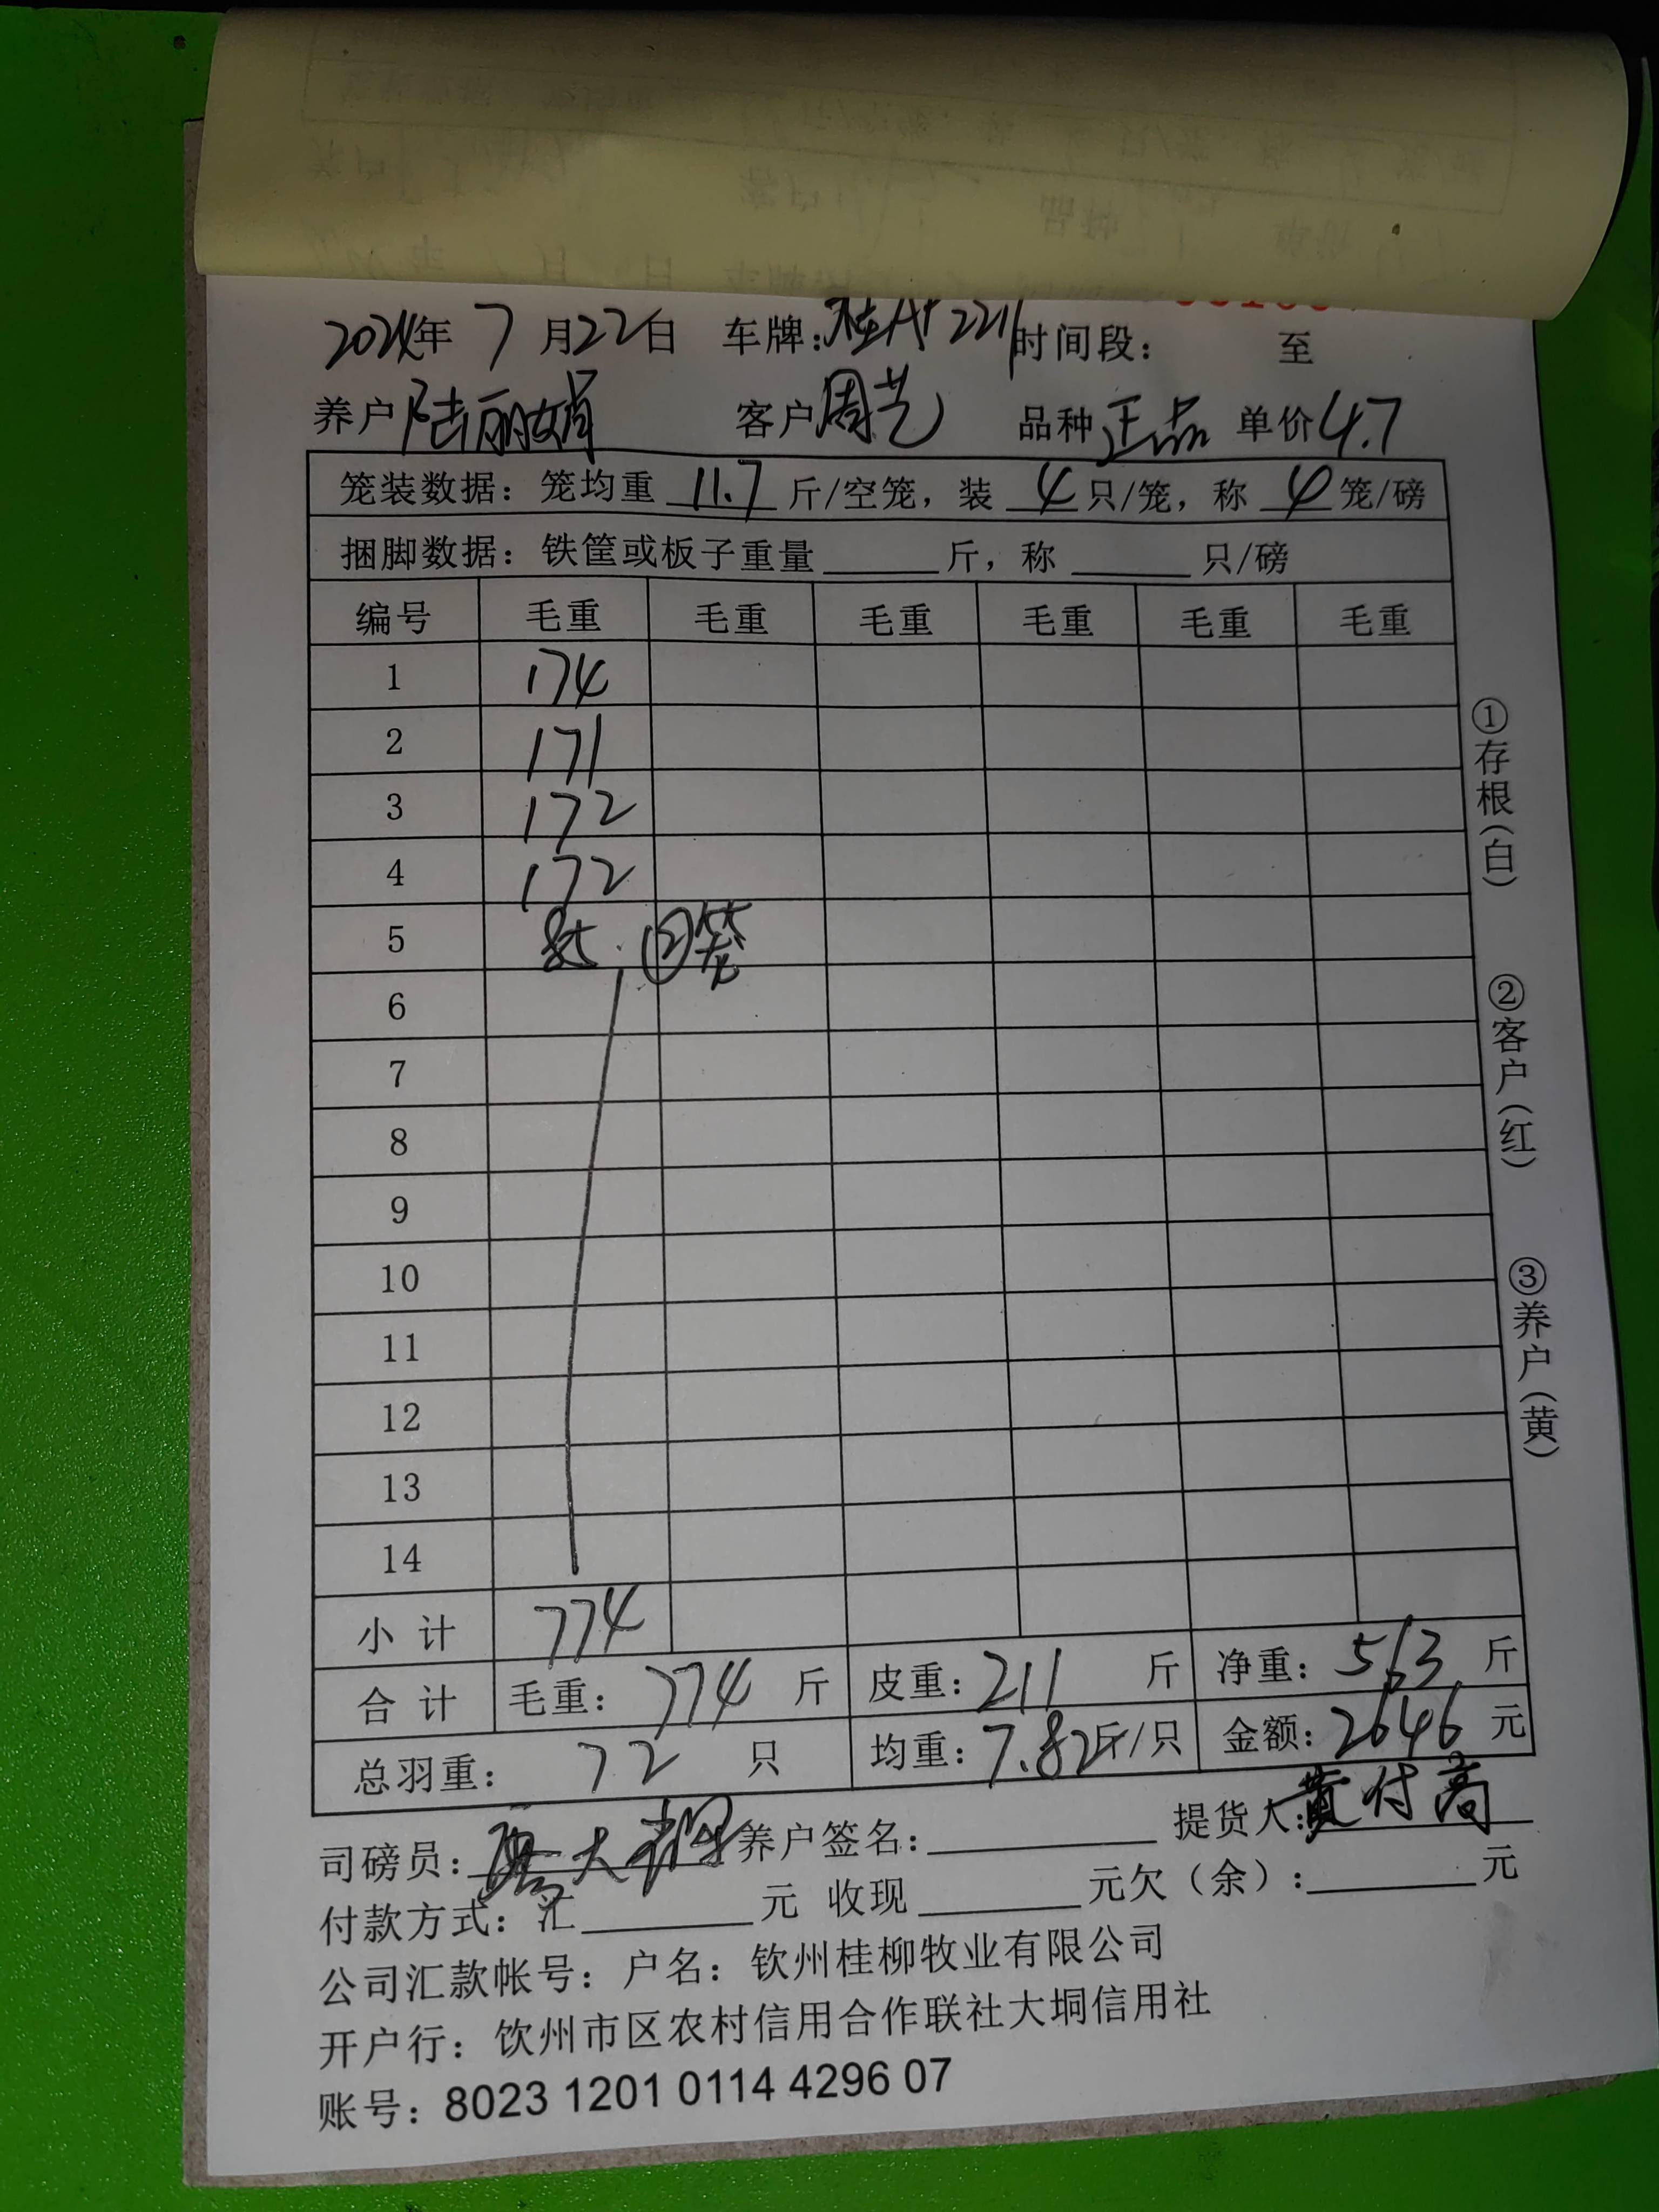 2024年 7 月 22 日 车牌: 桂A 2211 时间段: 至
养户 陆丽娟 客户 周艺 品种 正品 单价 4.7
笼装数据: 笼均重 11.7 斤/空笼, 装 4 只/笼, 称 4 笼/磅
捆脚数据: 铁筐或板子重量 斤, 称 只/磅
编号 毛重 毛重 毛重 毛重 毛重 毛重
1 174
2 171
3 172
4 172
5 85. ②笼
6
7
8
9
10
11
12
13
14
小 计 774
合 计 毛重: 774 斤 皮重: 211 斤 净重: 563 斤
总羽重: 72 只 均重: 7.82斤/只 金额: 2646 元
司磅员: 养户签名: 提货人: 黄付高
付款方式: 汇 元 收现 元欠(余): 元
公司汇款帐号: 户名: 钦州桂柳牧业有限公司
开户行: 钦州市区农村信用合作联社大垌信用社
账号: 8023 1201 0114 4296 07
①存根(白) ②客户(红) ③养户(黄)